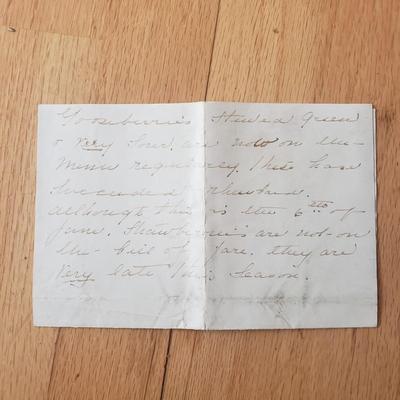 Gooseberries stewed green
& very sour, are now on the
menu regularly, this have
succeeded rhubarb.
although this is the 6th of
June. Strawberries are not on
the bill of fare, they are
very late this season.